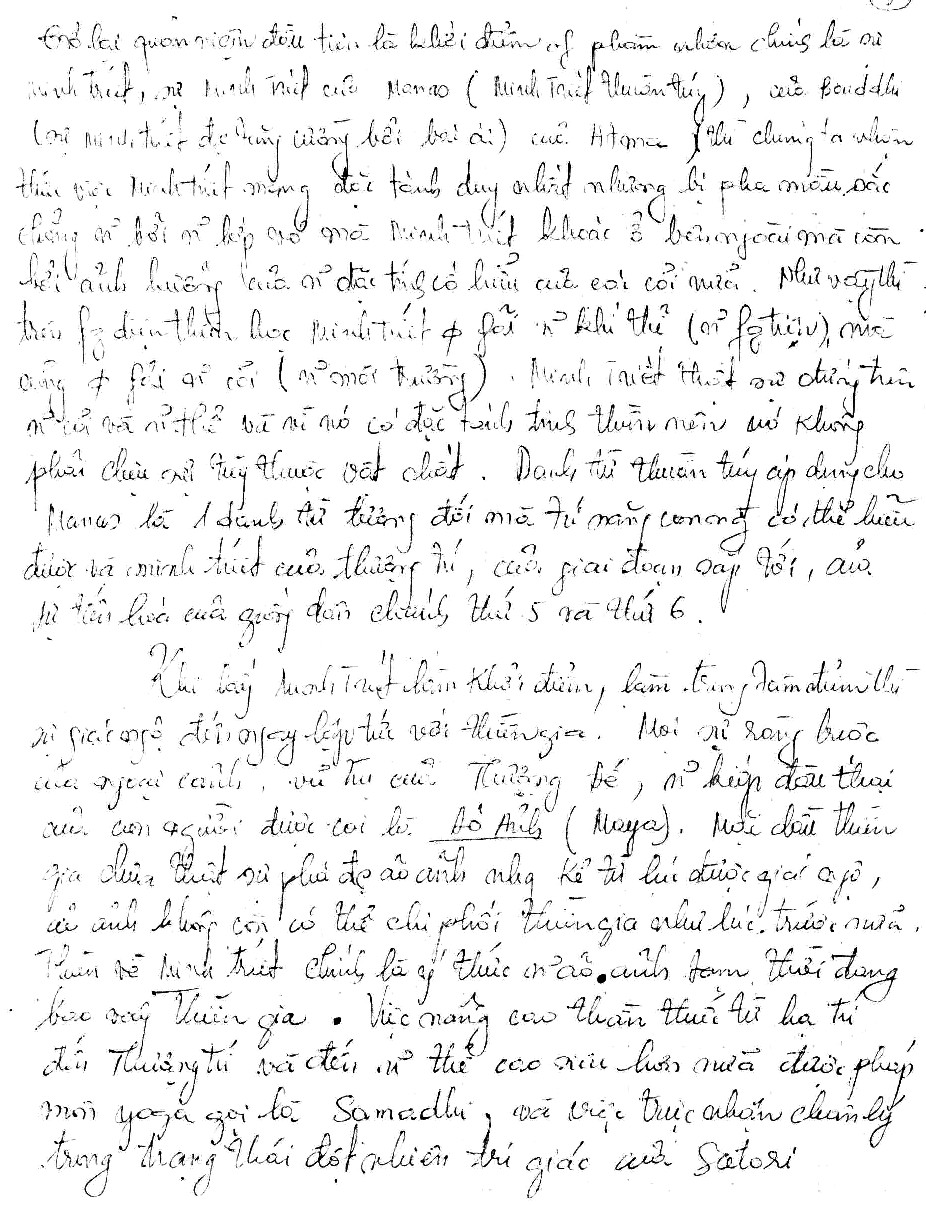 Trở lại quan niệm đầu tiên là khởi điểm of phàm nhân chính là sự
minh triết, sự Minh Triết của Manas (Minh Triết thuần túy), của Bouddhi
(sự minh triết đc tăng cường bởi bác ái) của Atma thì chúng ta nhận
thức việc Minh triết mang đặc tánh duy nhất nhưng bị pha màu sắc
chẳng bởi lớp vỏ mà Minh triết khoác ở bên ngoài mà còn
bởi ảnh hưởng của đặc tính cố hữu của cõi nữa. Như vậy thì
trên fg diện thiền học Minh triết ϕ fải khí thể (fg tiện), mà
cũng ϕ fải cõi (môi trường). Minh Triết thật sự đứng trên
cõi và thể và vì nó có đặc tánh tinh thần nên nó không
phải chịu sự tùy thuộc vật chất. Danh từ thuần túy áp dụng cho
Manas là 1 danh từ tương đối mà trí năng con ng có thể hiểu
được và minh triết của thượng trí, của giai đoạn sắp tới, của
sự tiến hóa của giống dân chánh thứ 5 và thứ 6.
Khi lấy Minh Triết làm khởi điểm, làm trung tâm điểm thì
sự giác ngộ đến ngay lập tức với thiền gia. Mọi sự ràng buộc
của ngoại cảnh, vũ trụ của Thượng Đế, kiếp đầu thai
của con người được coi là Ảo Ảnh (Maya). Mặc dầu thiền
gia chưa thật sự phá đc ảo ảnh nhg kể từ lúc được giác ngộ,
ảo ảnh không còn có thể chi phối thiền gia như lúc trước nữa.
Phần vô minh triết chính là ý thức ảo ảnh tạm thời đang
bao vây thiền gia. Việc nâng cao thần thức từ hạ trí
đến Thượng trí và đến thể cao siêu hơn nữa được pháp
môn yoga gọi là Samadhi, và việc trực nhận chân lý
trong trạng thái đột nhiên tri giác của Satori